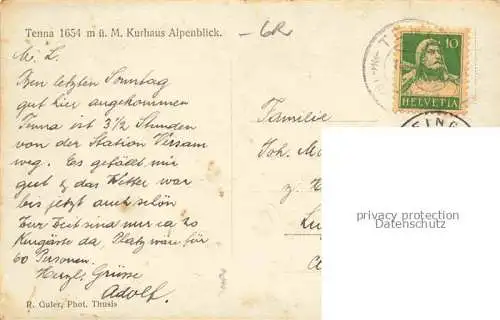 Tenna 1654 m ü. M. Kurhaus Alpenblick.
M. L.
Ben letzten Sonntag
gut hier angekommen
Tenna ist 3 1/2 Stunden
von der Station Versam
weg. Es gefällt mir
gut & das Wetter war
bis jetzt auch schön
Zur Zeit sind nur ca 20
Kurgäste da, Platz wäre für
60 Personen.
Herzl. Grüsse
Adolf.
R. Guler, Phot. Thusis
6R
10
HELVETIA
Familie
Joh.
z.
privacy protection
Datenschutz